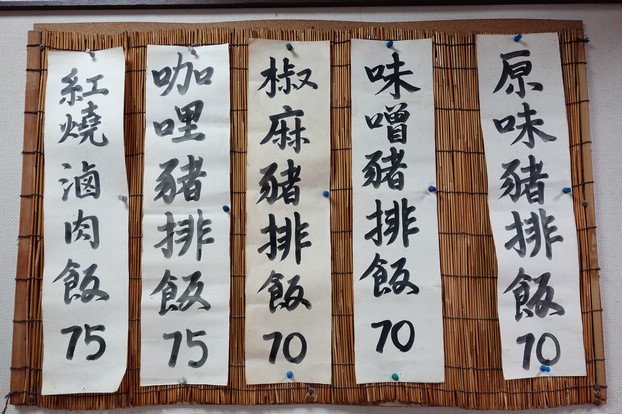 原味豬排飯70
味噌豬排飯70
椒麻豬排飯70
咖哩豬排飯75
紅燒滷肉飯75